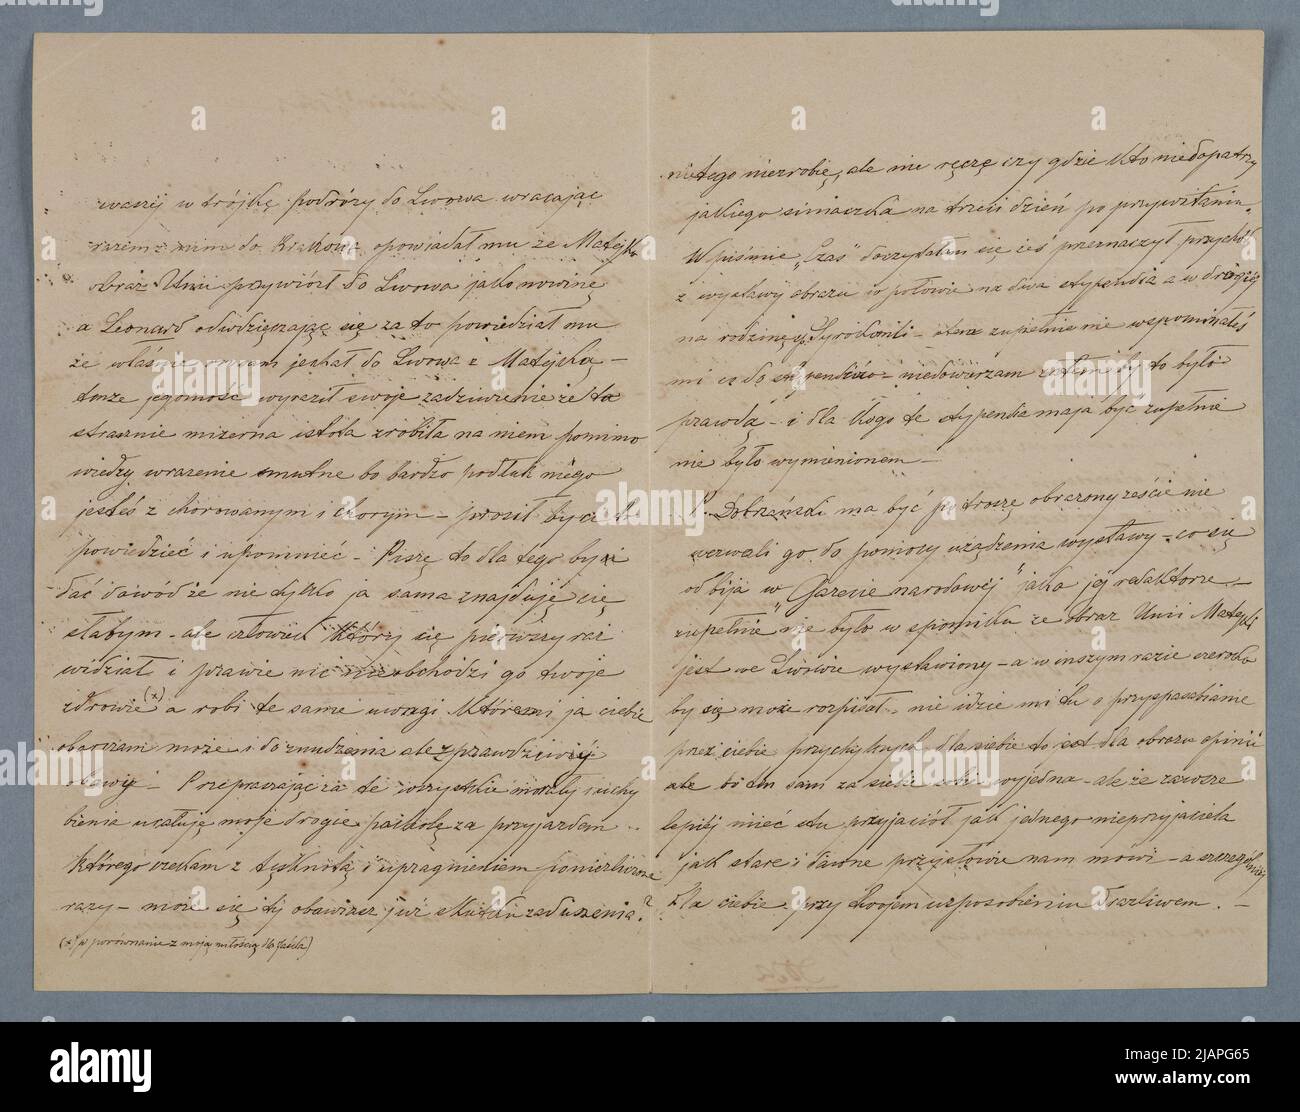 waszej w trójkę podróży do Lwowa wracając
razem z nim do Krakowa opowiadał mu że Matejko
obraz Unii przywiózł do Lwowa jako nowinę
a Leonard odwdzięczając się za to powiedział mu
że właśnie razem jechał do Lwowa z Matejką –
tenże jegomość wyraził swoje zadziwienie że ta
strasznie mizerna istota zrobiła na niem pomimo
wiedzy wrażenie smutne bo bardzo podług niego
jesteś z chorowanym i chorym – prosił by ci to
powiedzieć i upomnieć – Piszę to dla tego by ci
dać dowód że nie tylko ja sama znajduję cię
słabym – ale człowiek który cię pierwszy raz
widział i prawie nic nie obchodzi go twoje
zdrowie (x) a robi te same uwagi któremi ja ciebie
obarczam może i do znudzenia ale z prawdziwéj
obawy – Przepraszając za te wszystkie morały i uchy
bienia ucałuję moje drogie pacholę za przyjazdem ..
którego czekam z tęsknotą i upragnieniem
razy – może się ty obawiasz już skutku zaduszenia?
(x) w porównanie z moją miłością dla Jasia)
nie tego niezrobię, ale nie ręczę czy gdzie kto niedopatrzy
jakiego siniaczka na trzeci dzień po przywitaniu.
W pismie „Czas" doczytałam się żeś przeznaczył przychód
z wystawy obrazu w połowie na dwa stypendia a w drugiéj
na rodzinę Syrokomli – otem zupełnie nie wspominałeś
mi co do stypendiów – niedowierzam zatem by to było
prawdą – i dla kogo te stypendia maja być zupełnie
nie było wymienionem –
P. Dobrzański ma być po troszę obrażony żeście nie
wezwali go do pomocy urządzenia wystawy – co się
odbija w „Gazecie narodowéj" jako jéj redaktorze –
zupełnie nie było wspomnku że obraz Unii Matejki
jest we Lwowie wystawiony – a w inszym razie szeroko
by się może rozpisał. nie idzie mi tu o przysposabianie
przez ciebie przychylnych dla siebie to jest dla obrazu opinii
ale bo on sam za siebie sobie wyjedna – ale że zawsze
lepiéj mieć stu przyjaciół jak jednego nieprzyjaciela
jak stare i dawne przysłowie nam mówi – a szczególniéj
dla ciebie przy twojem usposobieniu drażliwem. –
alamy
Image ID: 2JAPG65
www.alamy.com